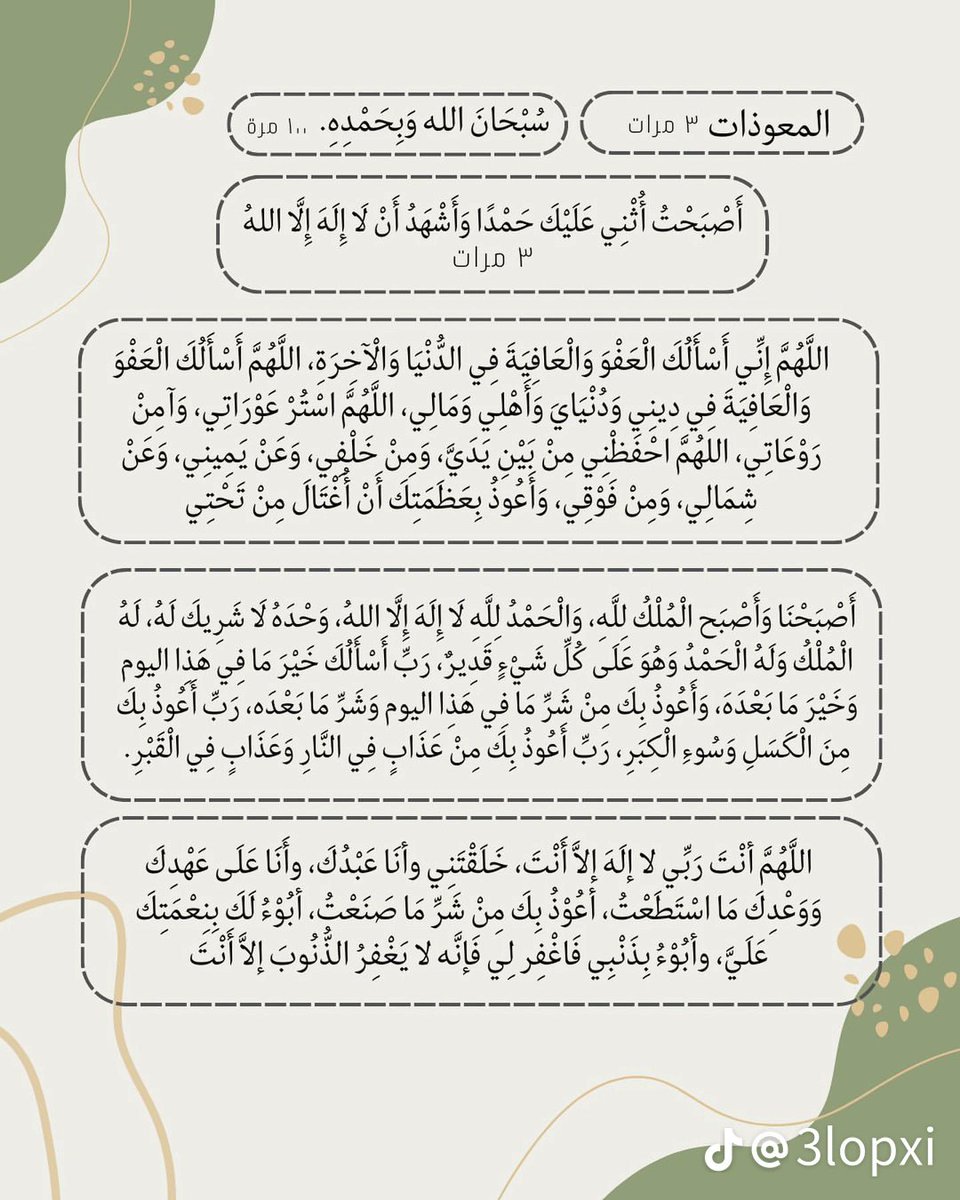 المعوذات ٣ مرات
سُبْحَانَ الله وَبِحَمْدِهِ. ١٠٠ مرة
أَصْبَحْتُ أُثْنِي عَلَيْكَ حَمْدًا وَأَشْهَدُ أَنْ لَا إِلَهَ إِلَّا اللهُ
٣ مرات
اللَّهُمَّ إِنِّي أَسْأَلُكَ الْعَفْوَ وَالْعَافِيَةَ فِي الدُّنْيَا وَالْآخِرَةِ، اللَّهُمَّ أَسْأَلُكَ الْعَفْوَ
وَالْعَافِيَةَ فِي دِينِي وَدُنْيَايَ وَأَهْلِي وَمَالِي، اللَّهُمَّ اسْتُرْ عَوْرَاتِي، وَآمِنْ
رَوْعَاتِي، اللهُمَّ احْفَظْنِي مِنْ بَيْنِ يَدَيَّ، وَمِنْ خَلْفِي، وَعَنْ يَمِينِي، وَعَنْ
شِمَالِي، وَمِنْ فَوْقِي، وَأَعُوذُ بِعَظَمَتِكَ أَنْ أُغْتَالَ مِنْ تَحْتِي
أَصْبَحْنَا وَأَصْبَح الْمُلْكُ لِلَّهِ، وَالْحَمْدُ لِلَّهِ لَا إِلَهَ إِلَّا اللهُ، وَحْدَهُ لَا شَرِيكَ لَهُ، لَهُ
الْمُلْكُ وَلَهُ الْحَمْدُ وَهُوَ عَلَى كُلِّ شَيْءٍ قَدِيرٌ، رَبِّ أَسْأَلُكَ خَيْرَ مَا فِي هَذِا اليوم
وَخَيْرَ مَا بَعْدَهَ، وَأَعُوذُ بِكَ مِنْ شَرِّ مَا فِي هَذِا اليوم وَشَرِّ مَا بَعْدَه، رَبِّ أَعُوذُ بِكَ
مِنَ الْكَسَلِ وَسُوءِ الْكِبَرِ، رَبِّ أَعُوذُ بِكَ مِنْ عَذَابٍ فِي النَّارِ وَعَذَابٍ فِي الْقَبْرِ.
اللَّهُمَّ أنْتَ رَبِّي لا إلَهَ إلاَّ أَنْتَ، خَلَقْتَنِي وأَنَا عَبْدُكَ، وأَنَا عَلَى عَهْدِكَ
وَوَعْدِكَ مَا اسْتَطَعْتُ، أعُوْذُ بِكَ مِنْ شَرِّ مَا صَنَعْتُ، أبُوْءُ لَكَ بِنِعْمَتِكَ
عَلَيَّ، وأبُوْءُ بِذَنْبِي فَاغْفِر لِي فَإنَّه لا يَغْفِرُ الذُّنُوبَ إلاَّ أَنْتَ
@3lopxi